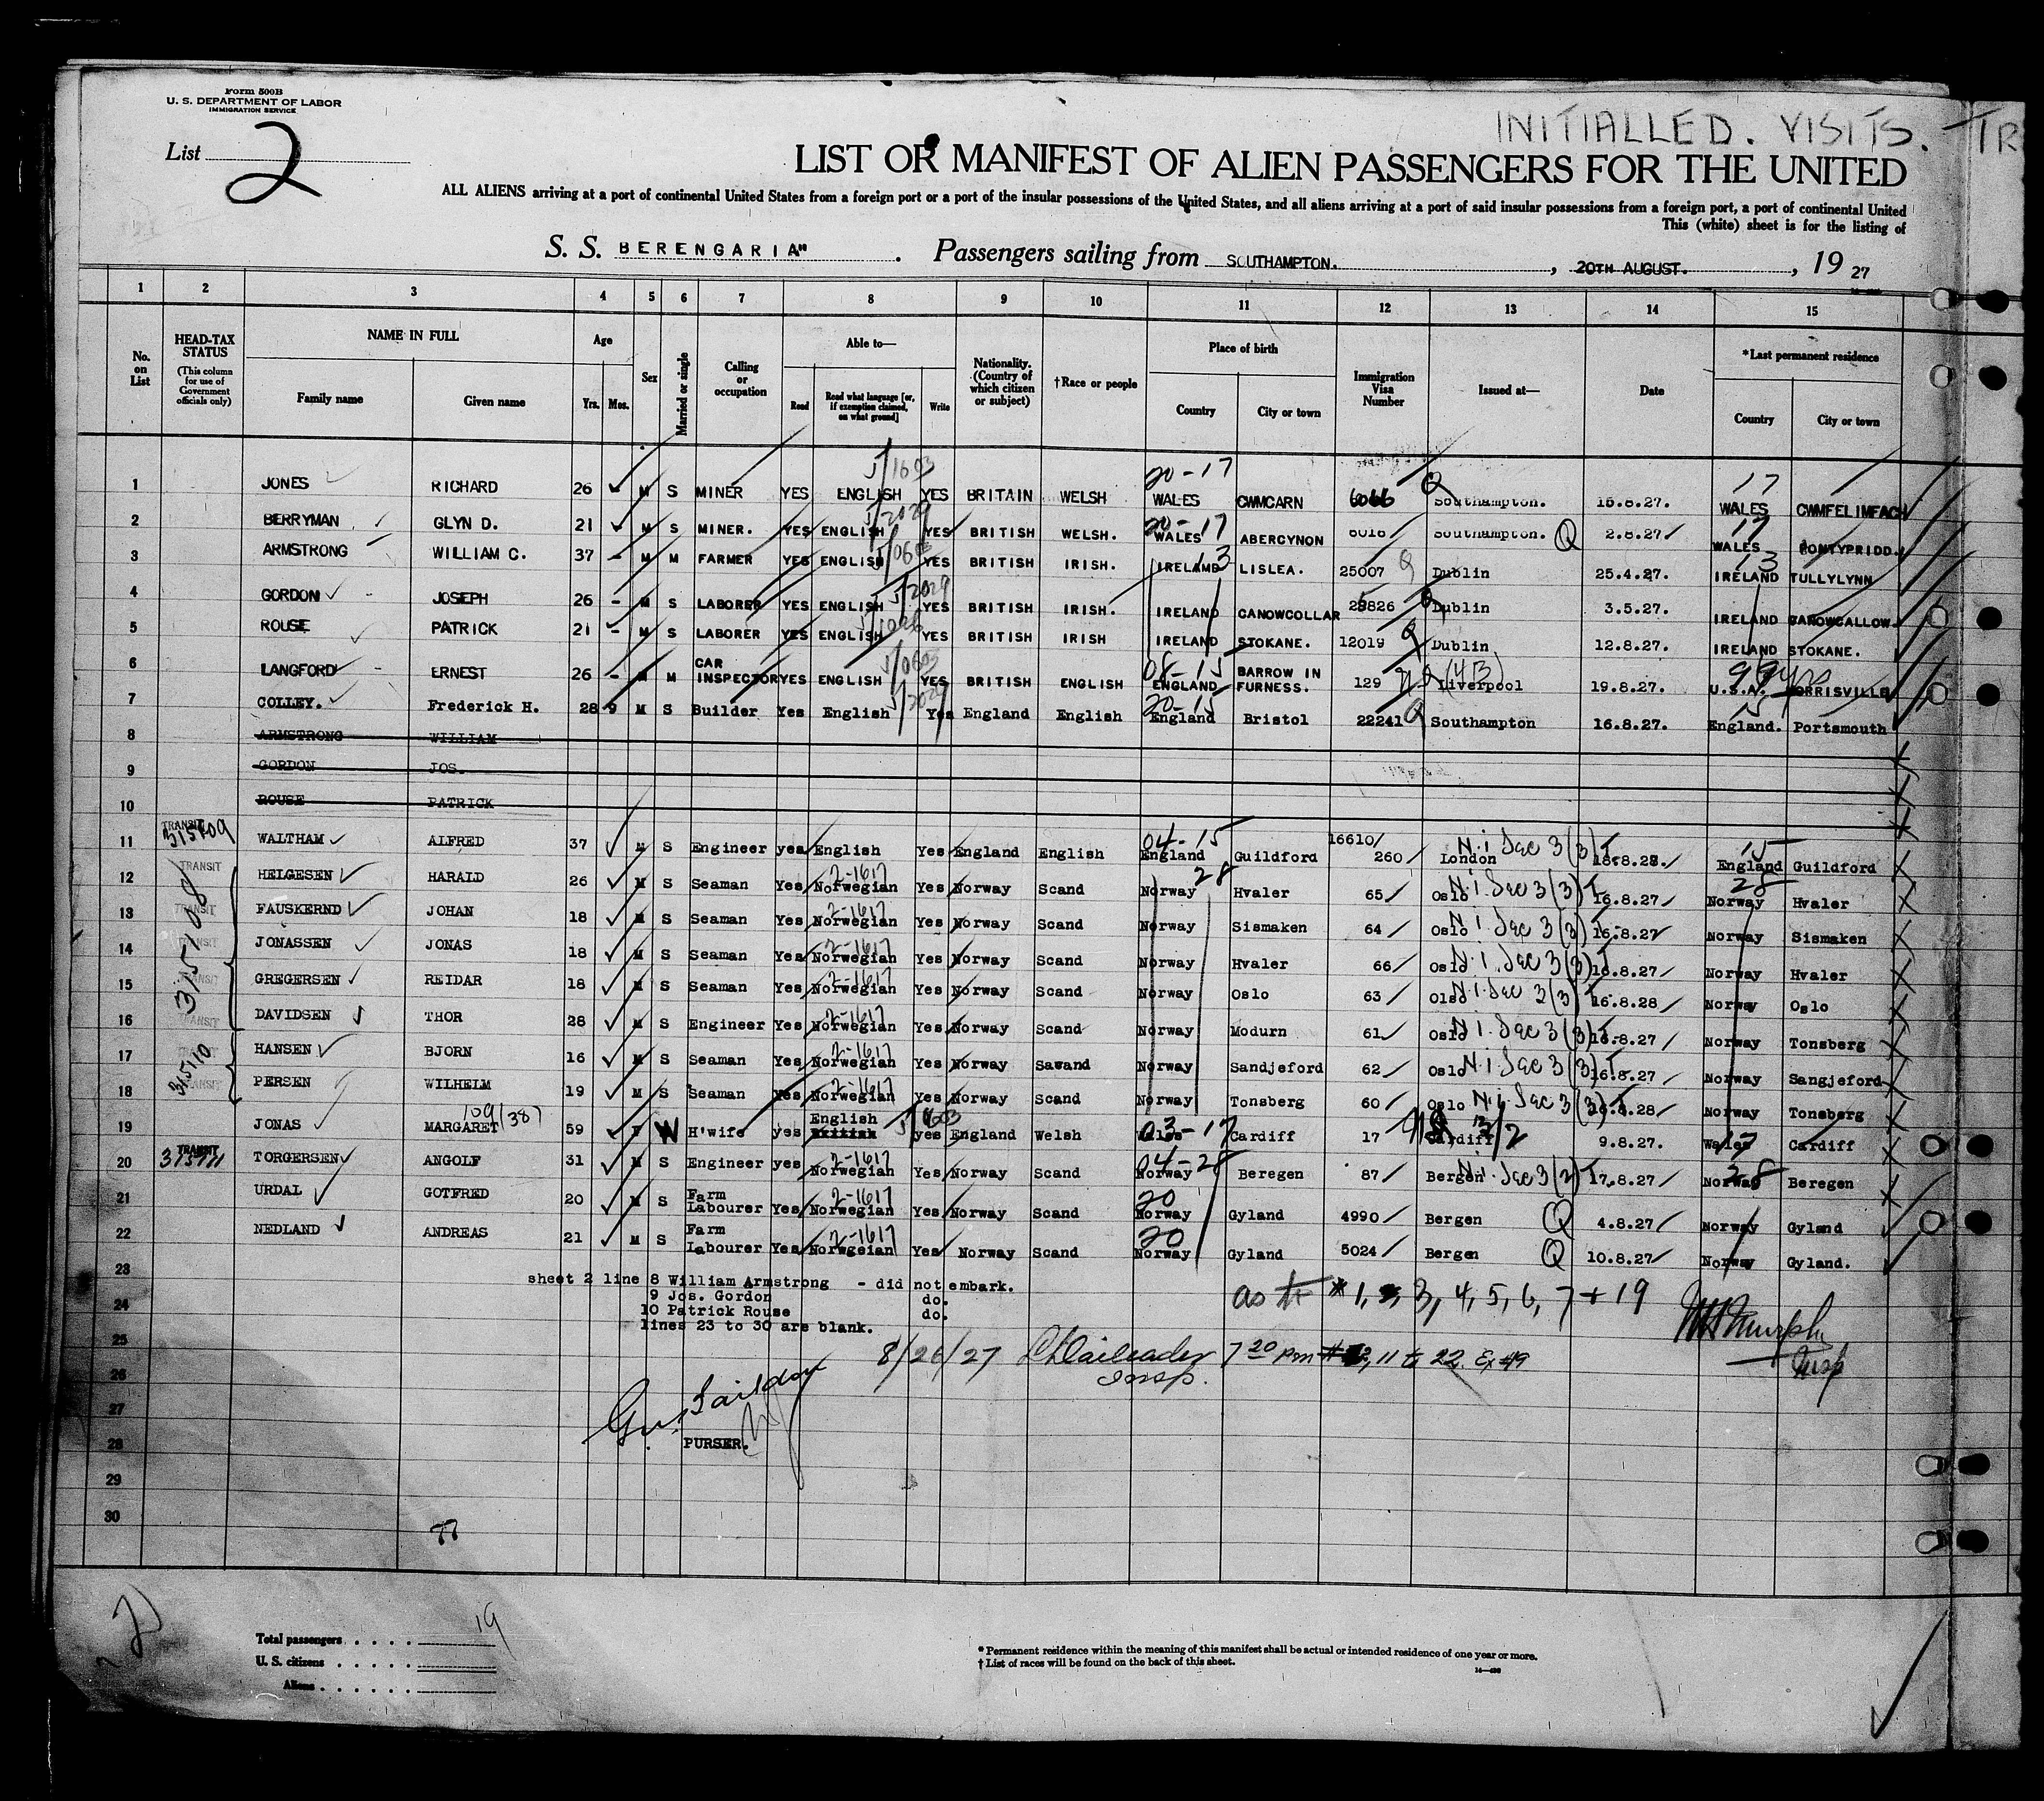 Form 500B
U. S. DEPARTMENT OF LABOR
IMMIGRATION SERVICE
INITIALLED. VISITS. TR
List 2
LIST OR MANIFEST OF ALIEN PASSENGERS FOR THE UNITED
ALL ALIENS arriving at a port of continental United States from a foreign port or a port of the insular possessions of the United States, and all aliens arriving at a port of said insular possessions from a foreign port, a port of continental United
This (white) sheet is for the listing of
S. S. BERENGARIA" . Passengers sailing from SOUTHAMPTON. , 20TH AUGUST. , 19 27
1 2 3 4 5 6 7 8 9 10 11 12 13 14 15
No. on List HEAD-TAX STATUS (This column for use of Government officials only) NAME IN FULL Family name Given name Age Yrs. Mos. Sex Married or single Calling or occupation Able to— Read Read what language [or, if exemption claimed, on what ground] Write Nationality. (Country of which citizen or subject) †Race or people Place of birth Country City or town Immigration Visa Number Issued at— Date *Last permanent residence Country City or town
1 JONES RICHARD 26 - M S MINER YES ENGLISH YES BRITAIN WELSH 20-17 WALES CWMCARN 6066 Q Southampton. 15.8.27. 17 WALES CWMFELINFACH
2 BERRYMAN GLYN D. 21 - M S MINER. YES ENGLISH YES BRITISH WELSH. 20-17 WALES ABERCYNON 6016 Southampton. Q 2.8.27 17 WALES PONTYPRIDD.
3 ARMSTRONG WILLIAM C. 37 - M M FARMER YES ENGLISH YES BRITISH IRISH. IRELAND 13 LISLEA. 25007 Q Dublin 25.4.27. 13 IRELAND TULLYLYNN
4 GORDON JOSEPH 26 - M S LABORER YES ENGLISH YES BRITISH IRISH. IRELAND CANOWCOLLAR Dublin 3.5.27. IRELAND CANOWCALLOW.
5 ROUSE PATRICK 21 - M S LABORER YES ENGLISH YES BRITISH IRISH IRELAND STOKANE. 12019 Q Dublin 12.8.27. IRELAND STOKANE.
6 LANGFORD ERNEST 26 - M M CAR INSPECTOR YES ENGLISH YES BRITISH ENGLISH 08-15 ENGLAND BARROW IN FURNESS. 129 Liverpool 19.8.27. U.S.A. MORRISVILLE
7 COLLEY. Frederick H. 28 9 M S Builder Yes English Yes England English 20-15 England Bristol 22241 Q Southampton 16.8.27. 15 England. Portsmouth
8 ARMSTRONG WILLIAM
9 GORDON JOS.
10 ROUSE PATRICK
11 TRANSIT 315109 WALTHAM ALFRED 37 M S Engineer yes English Yes England English 04-15 England Guildford 16610/ 260/ London N.i Sec 3(3) 18.8.28. 15 England Guildford
12 TRANSIT HELGESEN HARALD 26 M S Seaman Yes 2-1617 Norwegian Yes Norway Scand 28 Norway Hvaler 65/ Oslo N.i Sec 3(3) 16.8.27/ 28 Norway Hvaler
13 TRANSIT FAUSKERND JOHAN 18 M S Seaman Yes 2-1617 Norwegian Yes Norway Scand Norway Sismaken 64/ Oslo N.i Sec 3(3) 16.8.27 Norway Sismaken
14 TRANSIT 315108 JONASSEN JONAS 18 M S Seaman Yes 2-1617 Norwegian Yes Norway Scand Norway Hvaler 66/ Oslo N.i Sec 3(3) 16.8.27/ Norway Hvaler
15 TRANSIT GREGERSEN REIDAR 18 M S Seaman Yes 2-1617 Norwegian Yes Norway Scand Norway Oslo 63/ Olso N.i Sec 3(3) 16.8.28/ Norway Oslo
16 TRANSIT DAVIDSEN THOR 28 M S Engineer Yes 2-1617 Norwegian Yes Norway Scand Norway Modurn 61/ Oslo N.i. Sec 3(3) 16.8.27/ Norway Tonsberg
17 315110 HANSEN BJORN 16 M S Seaman Yes 2-1617 Norwegian Yes Norway Sawand Norway Sandjeford 62/ Oslo N.i Sec 3(3) 16.8.27 Norway Sangjeford
18 TRANSIT PERSEN WILHELM 19 M S Seaman Yes 2-1617 Norwegian Yes Norway Scand Norway Tonsberg 60/ Oslo N.i. Sec 3(3) 16.8.28/ Norway Tonsberg
19 JONAS MARGARET 109/387 59 F W H'wife yes English British yes England Welsh 03-17 Wales Cardiff 17 Cardiff 9.8.27. 17 Wales Cardiff
20 TRANSIT 315111 TORGERSEN ANGOLF 31 M S Engineer yes 2-1617 Norwegian Yes Norway Scand 04-28 Norway Beregen 87/ Bergen N.i Sec 3(2) 17.8.27/ 28 Norway Beregen
21 URDAL GOTFRED 20 M S Farm Labourer Yes 2-1617 Norwegian Yes Norway Scand 20 Norway Gyland 4990/ Bergen Q 4.8.27/ Norway Gyland
22 NEDLAND ANDREAS 21 M S Farm Labourer Yes 2-1617 Norwgeian Yes Norway Scand 20 Norway Gyland 5024/ Bergen Q 10.8.27/ Norway Gyland.
23 sheet 2 line 8 William Armstrong - did not embark.
9 Jos. Gordon do.
24 10 Patrick Rouse do.
lines 23 to 30 are blank.
as to # 1, 3, 4, 5, 6, 7 + 19
25
8/26/27 7 20 pm 11 to 22 Ex 19
Insp.
Insp
26
27
28 PURSER.
29
30
77
2
Total passengers . . . . . 19
U. S. citizens . . . . .
Aliens . . . . . .
* Permanent residence within the meaning of this manifest shall be actual or intended residence of one year or more.
† List of races will be found on the back of this sheet.